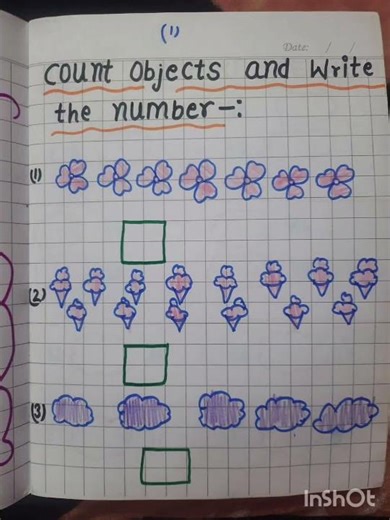 (1)
Date: / /
Count Objects and Write
the number-:
(1)
(2)
(3)
InShOt